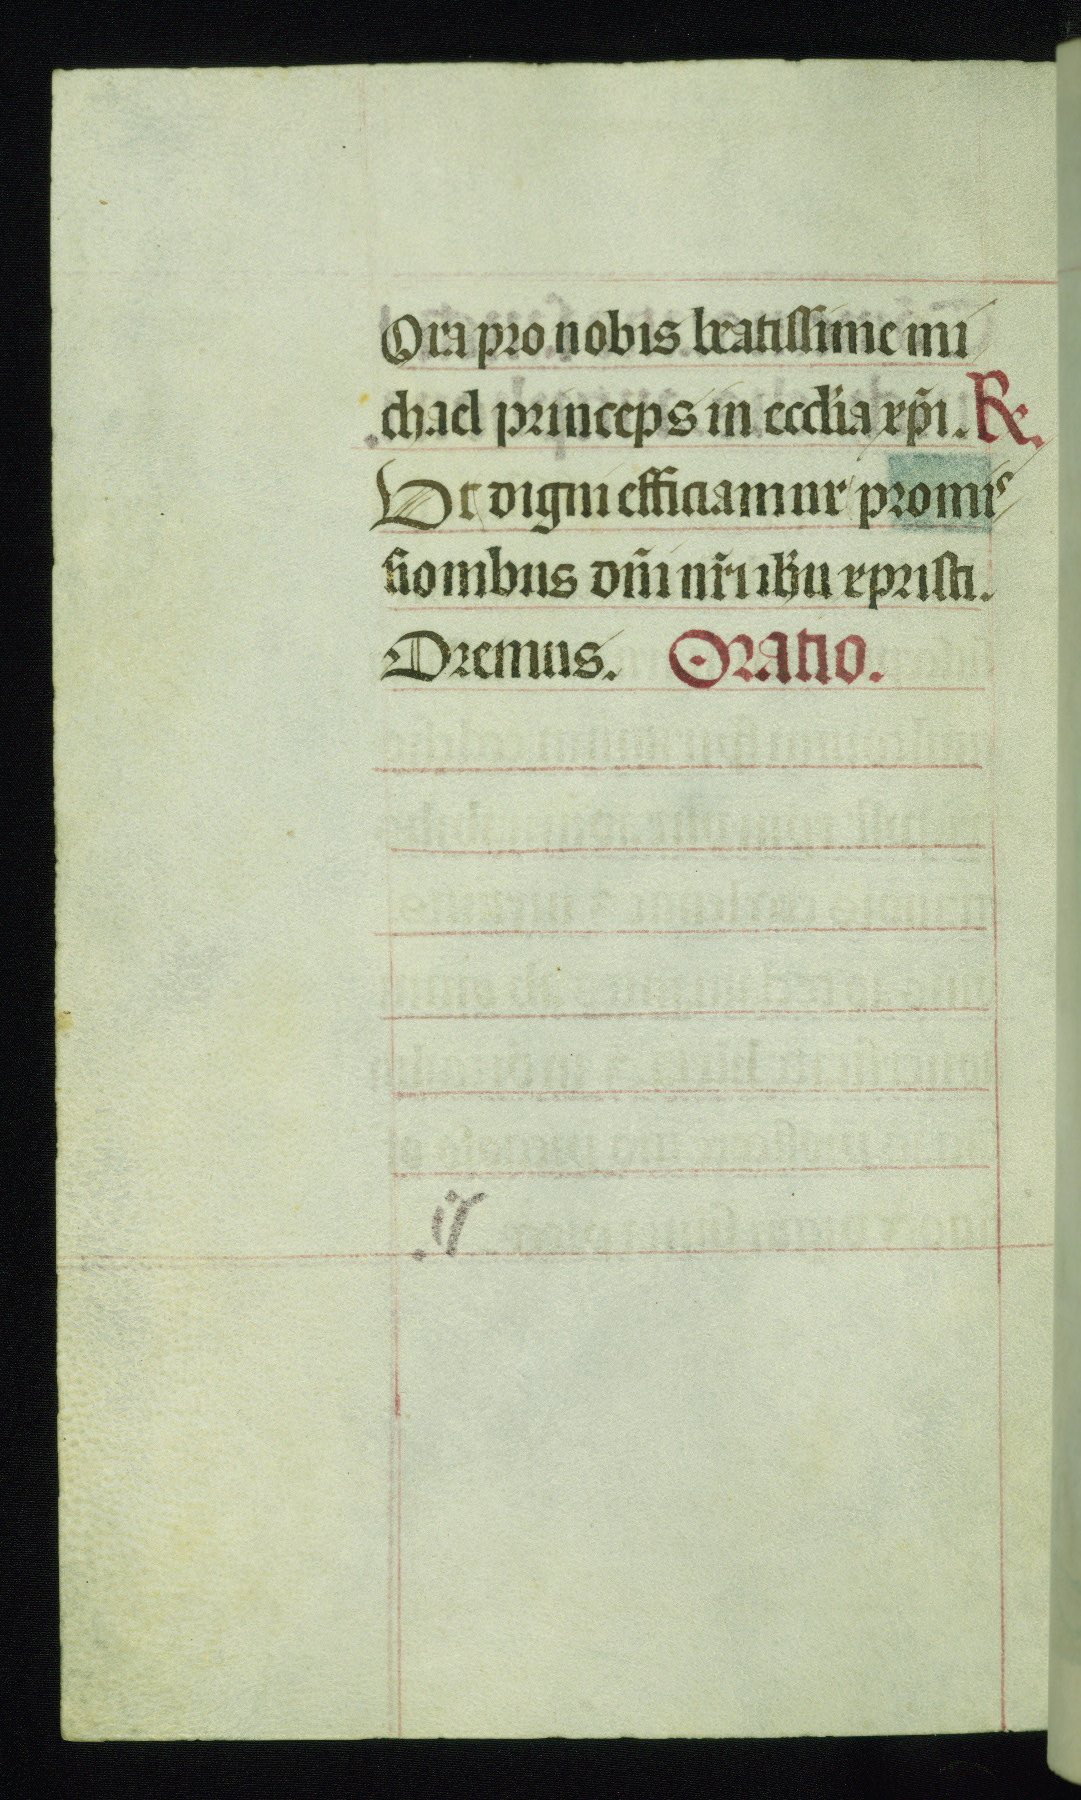 Ora pro nobis beatissime mi
chael princeps in ecclĩa xp̃i. R.
Ut digni efficiamur promis
sionibus dñi nr̃i ihũ xpristi.
Oremus. Oratio.